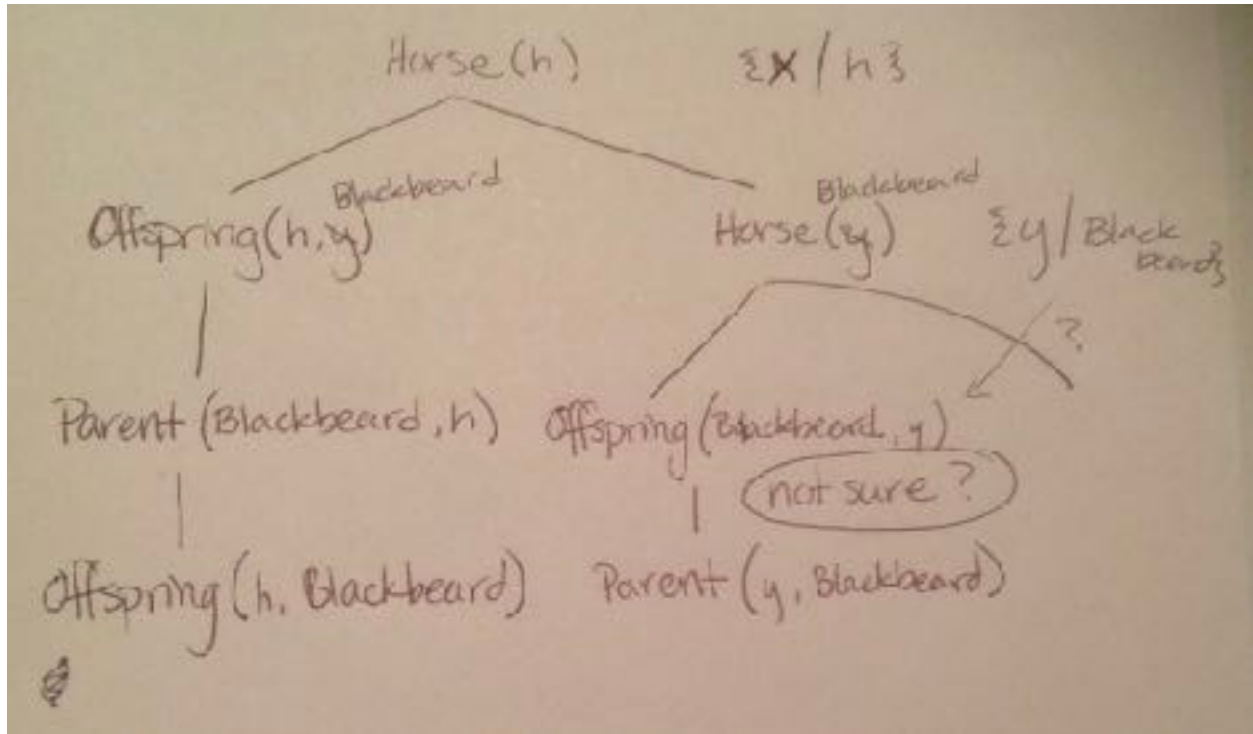 Horse(h) {x/h}
Blackbeard Blackbeard
Offspring(h,y) Horse(y) {y/Black
beard}
?
Parent(Blackbeard,h) Offspring(Blackbeard,y)
not sure?
Offspring(h, Blackbeard) Parent(y, Blackbeard)